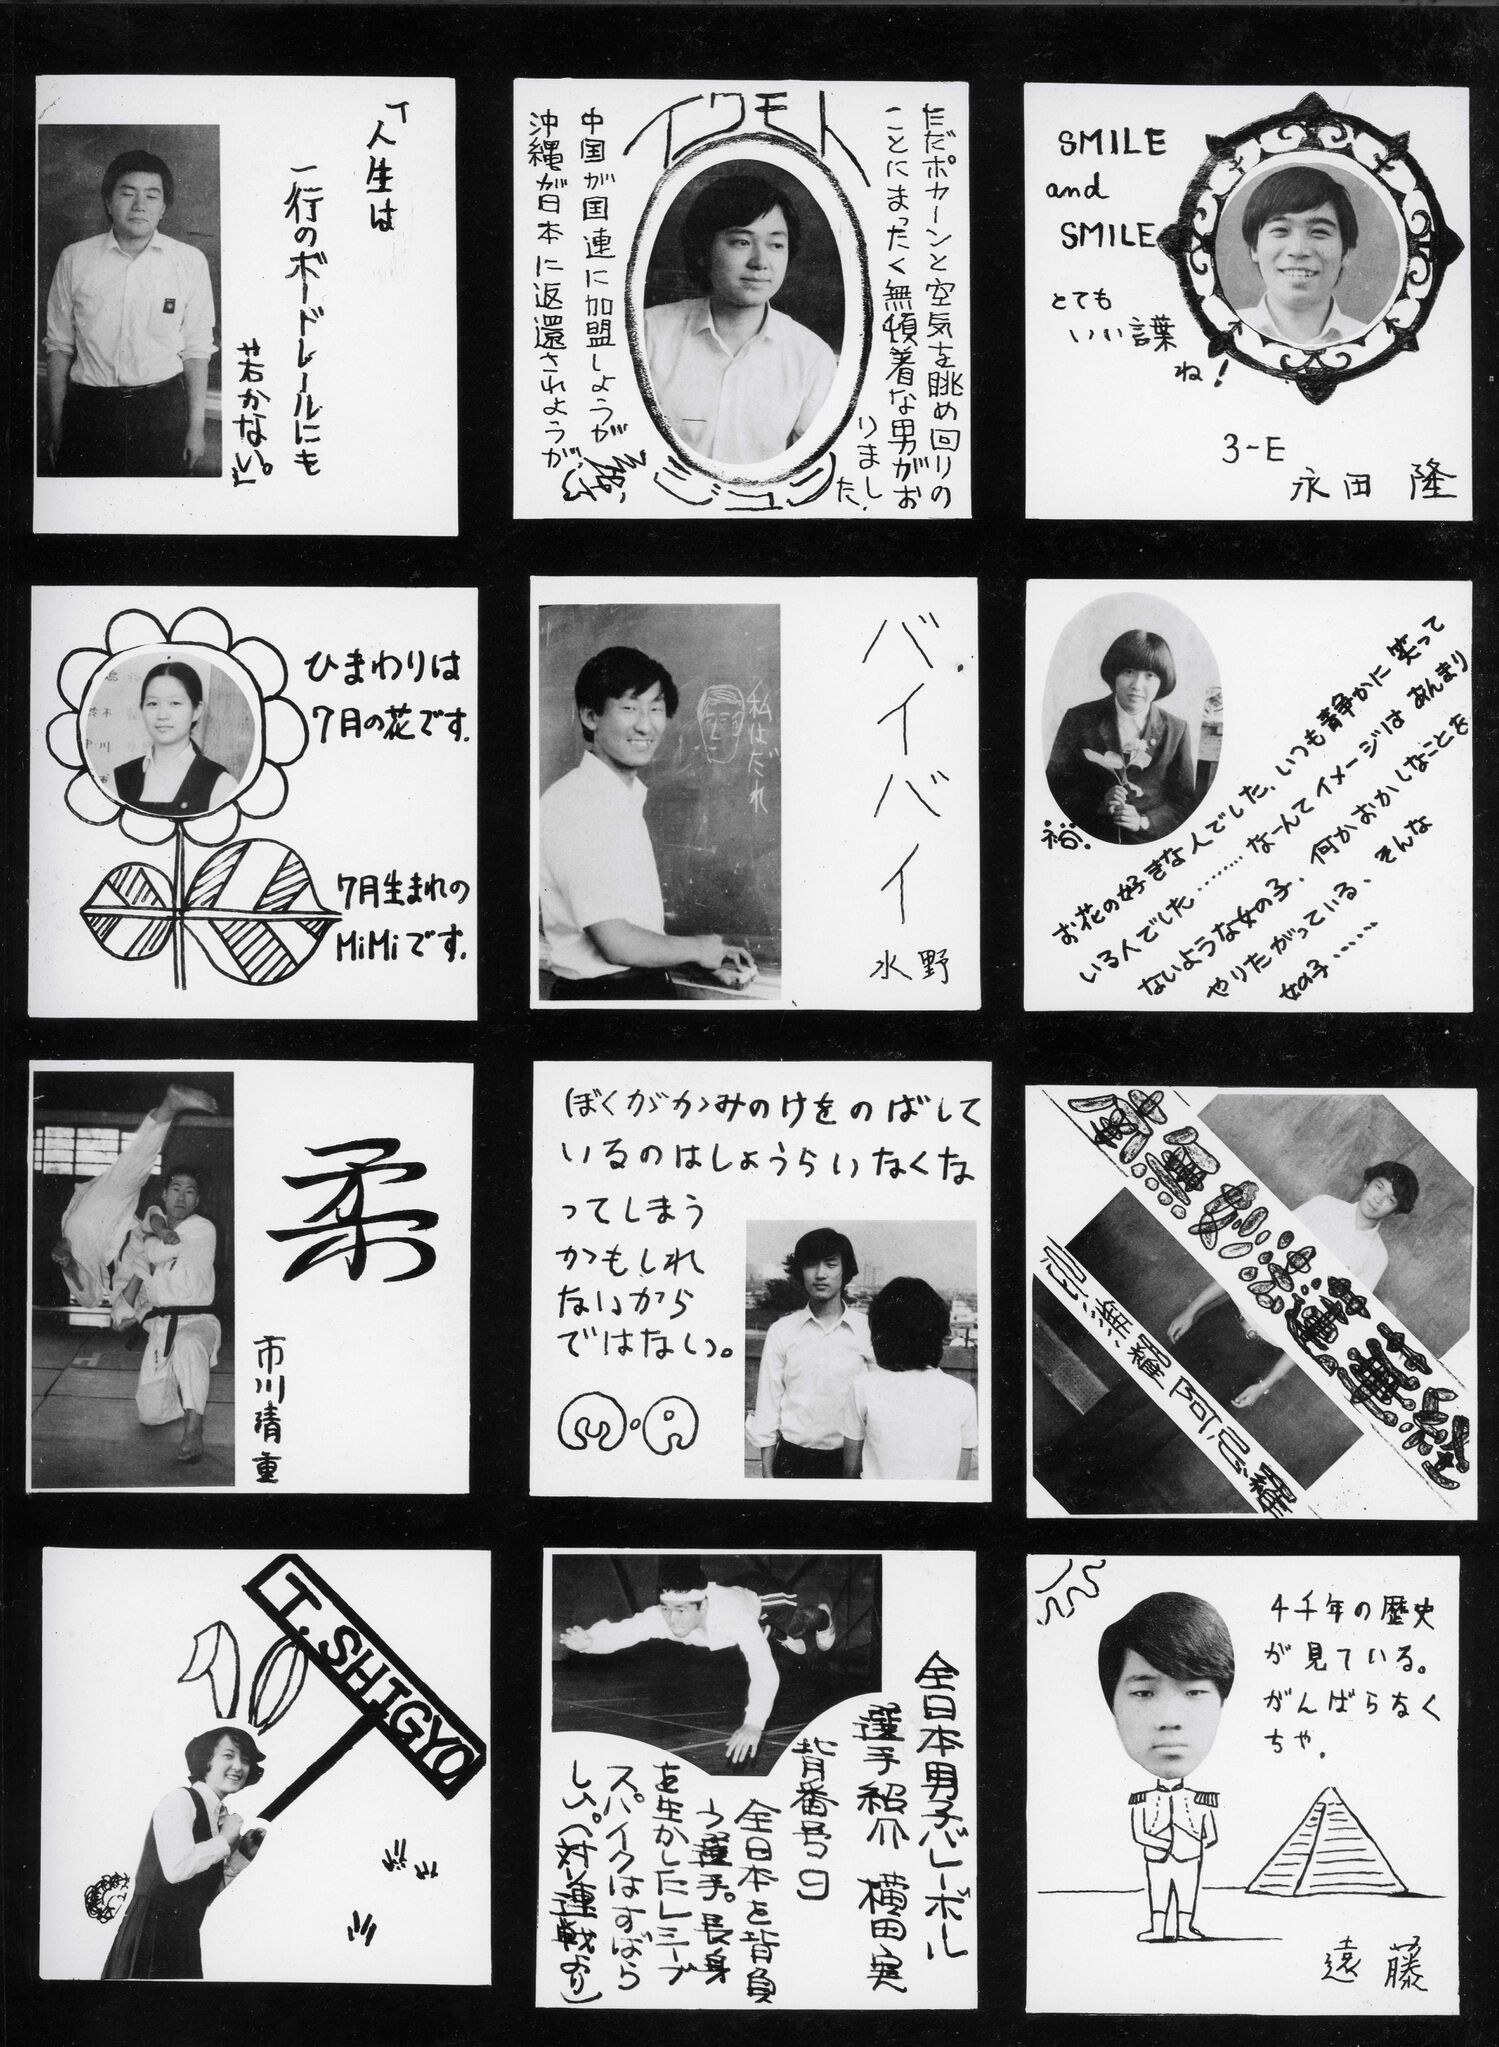 「人生は
一行のボードレールにも
若かない。」
イワモト
ただポカーンと空気を眺め回りの
ことにまったく無頓着な男がお
りました。
中国が国連に加盟しようが
沖縄が日本に返還されようが
ジュン
SMILE
and
SMILE
とても
いい言葉
ね!
3-E
永田 隆
ひまわりは
7月の花です.
7月生まれの
MiMiです.
私はだれ
バ.イバイ
水野
お花の好きな人でした、いつも静かに笑って
いる人でした………なーんてイメージはあんまり
ないような女の子、何かおかしなことを
やりたがっている、そんな
女の子……
柔
市川清重
ぼくがかみのけをのばして
いるのはしょうらいなくな
ってしまう
かもしれ
ないから
ではない。
M.A
南無妙法蓮華経
忌無羅阿忌羅
T.SHIGYO
全日本男子バレーボール
選手紹介 横田実
背番号9
全日本を背負
う選手。長身
を生かしたレシーブ
スパイクはすばら
しい。(対ソ連戦より)
4千年の歴史
が見ている。
がんばらなく
ちゃ.
遠藤